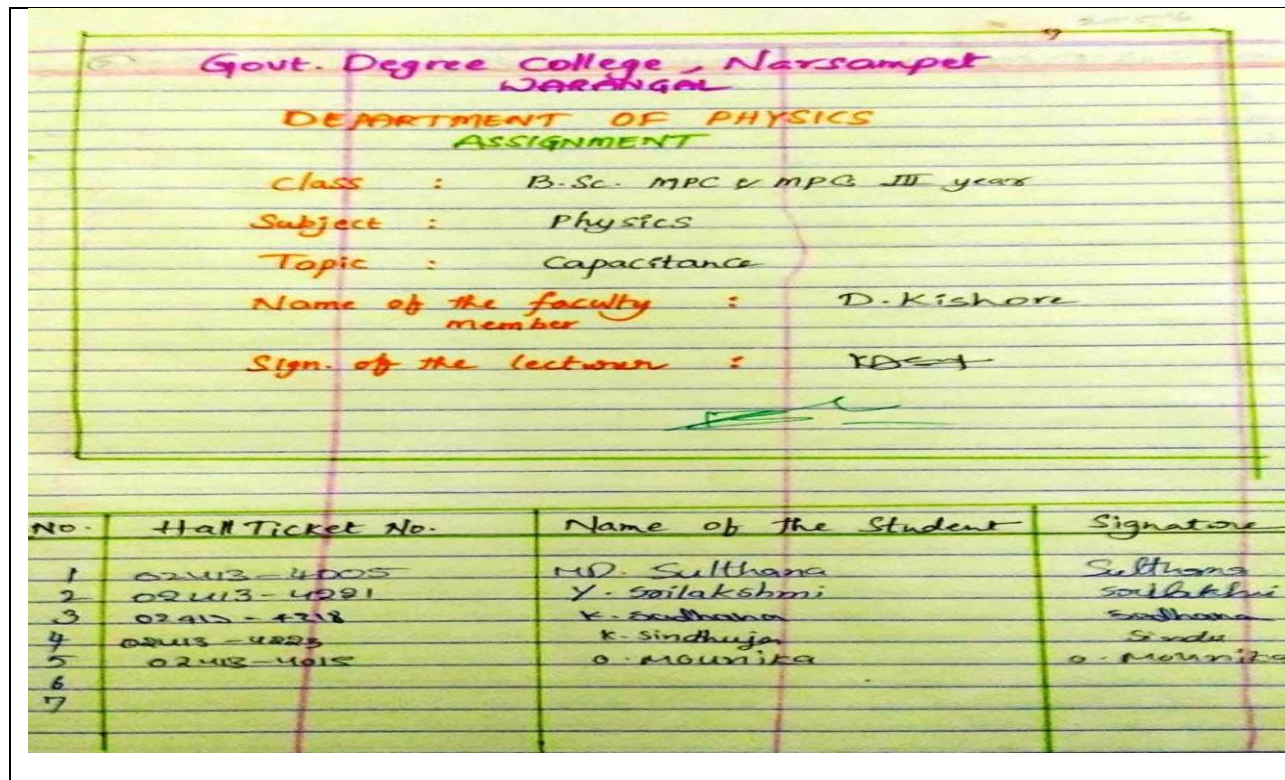 Govt. Degree College, Narsampet
WARANGAL
DEPARTMENT OF PHYSICS
ASSIGNMENT
Class : B.Sc. MPC & MPCs III year
Subject : Physics
Topic : Capacitance
Name of the faculty : D. Kishore
member
Sign. of the lecturer :
No. Hall Ticket No. Name of the Student Signature
1 02413-4005 MD. Sulthana Sulthana
2 02413-4221 Y. Sailakshmi Sailakshmi
3 02413-4218 K. Sadhana Sadhana
4 02413-4223 K. Sindhuja Sindu
5 02413-4015 O. Mounika O. Mounika
6
7